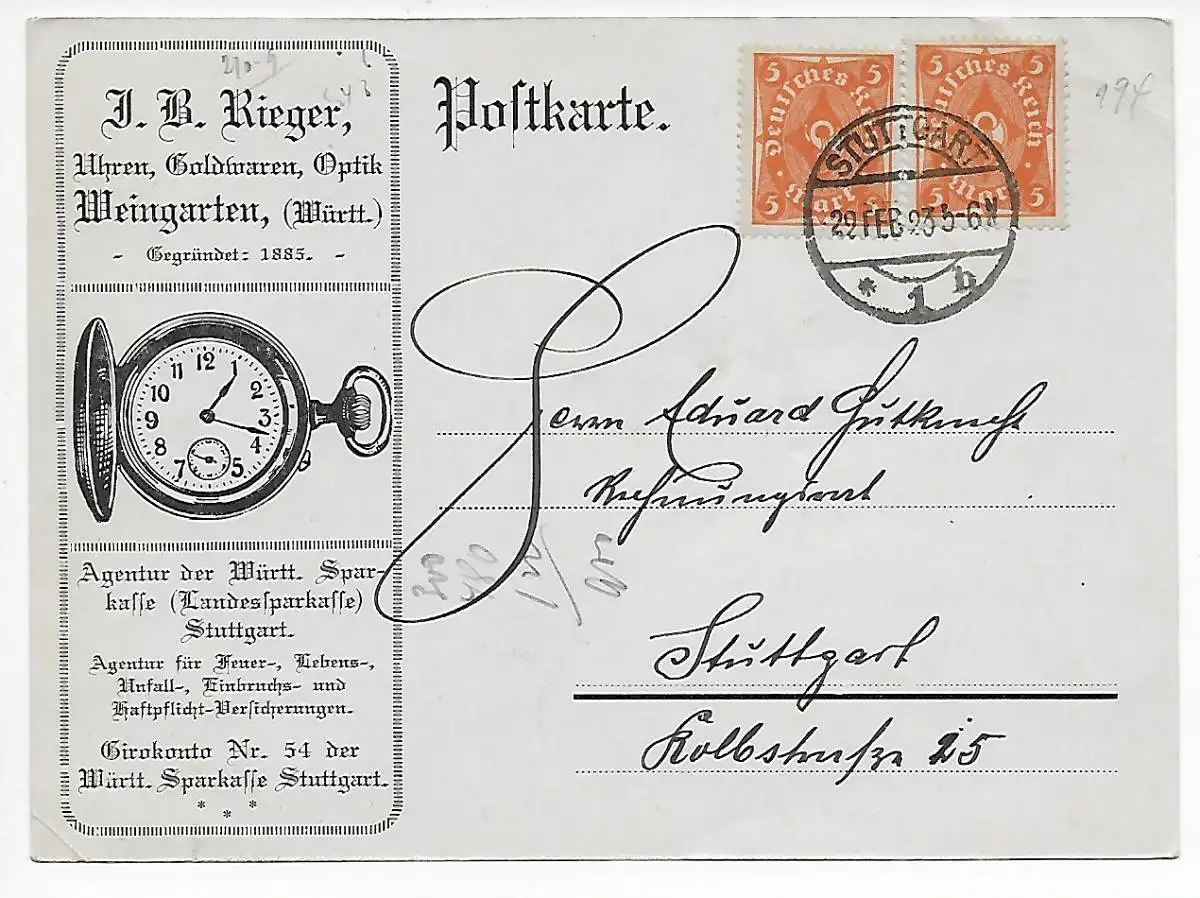 J. B. Rieger,
Uhren, Goldwaren, Optik
Weingarten, (Württ.)
- Gegründet: 1885. -
12
1
2
3
4
5
7
8
9
10
11
Agentur der Württ. Spar-
kasse (Landessparkasse)
Stuttgart.
Agentur für Feuer-, Lebens-,
Unfall-, Einbruchs- und
Haftpflicht-Versicherungen.
Girokonto Nr. 54 der
Württ. Sparkasse Stuttgart.
* * *
Postkarte.
5 Deutsches Reich 5
5 Mark 5
5 Deutsches Reich 5
5 Mark 5
STUTTGART
22 FEB 23 5-6 N
* 1 h
Herrn Eduard Gutknecht
Rechnungsrat
Stuttgart
Kolbstraße 25